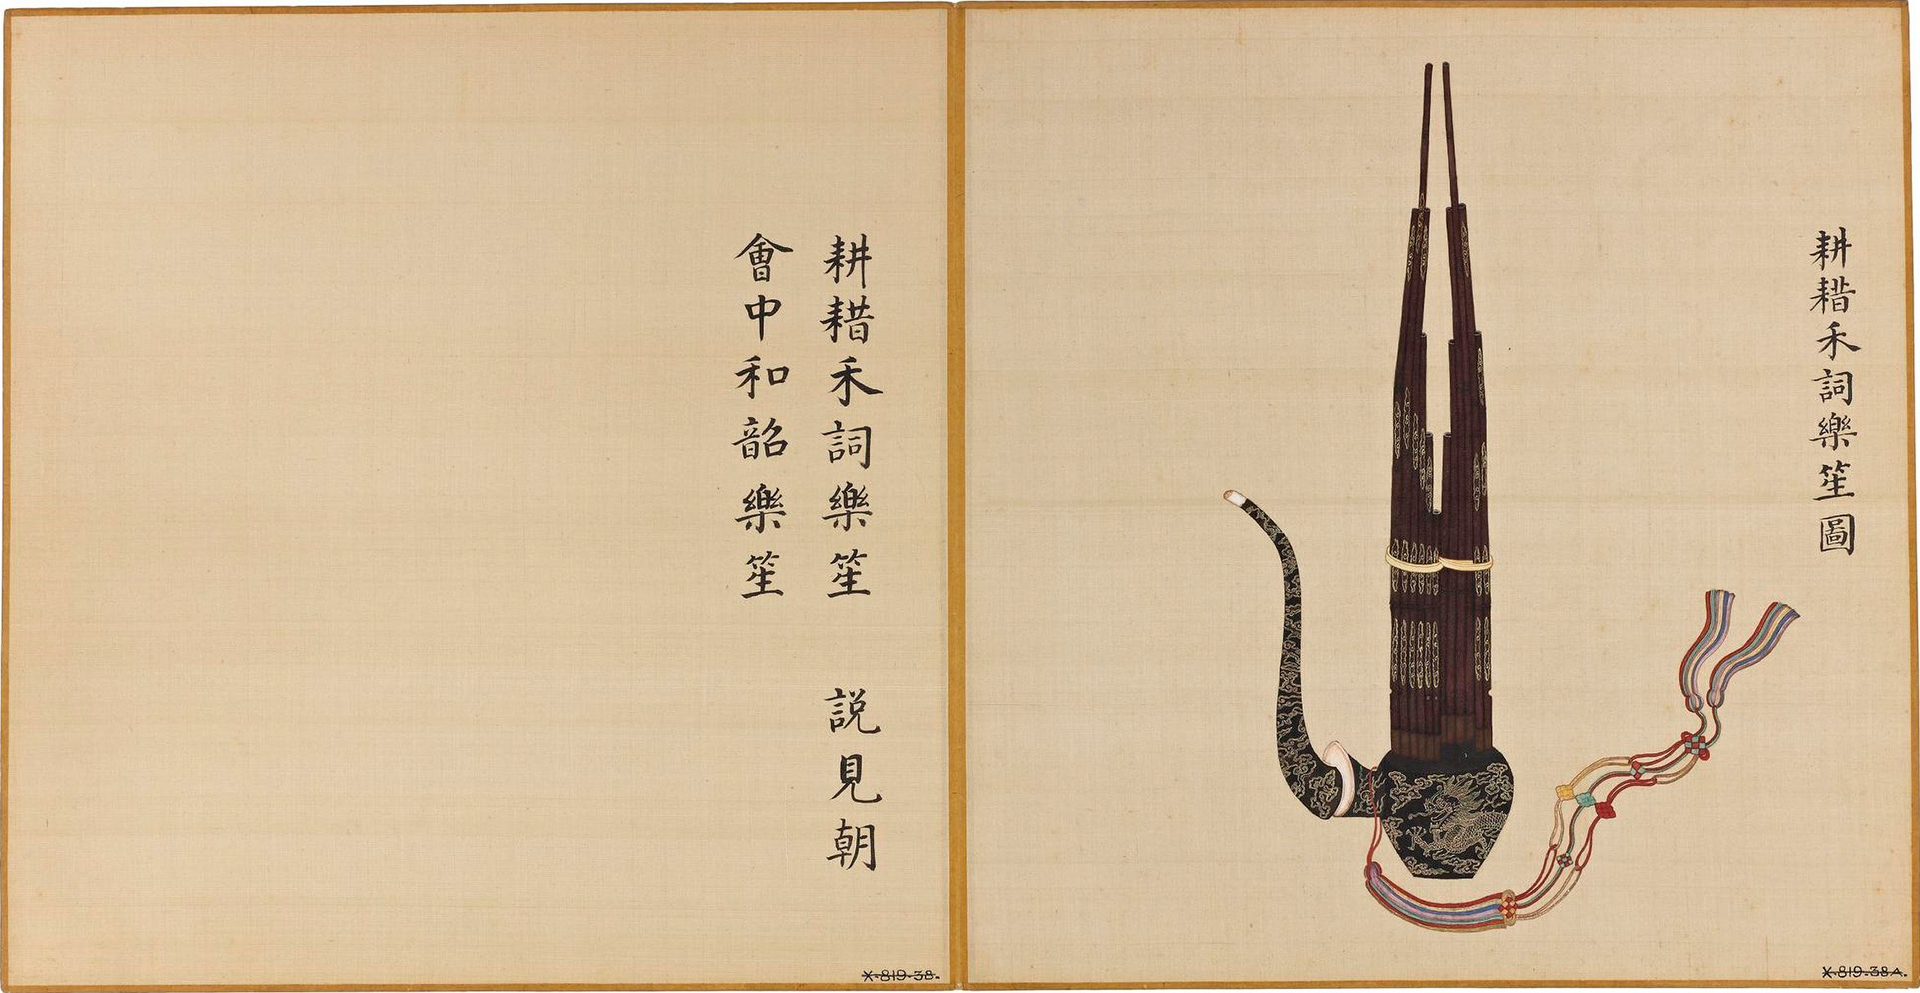 耕耤禾詞樂笙圖
耕耤禾詞樂笙 說見朝
會中和韶樂笙
X-819-38.
X-819-38A.